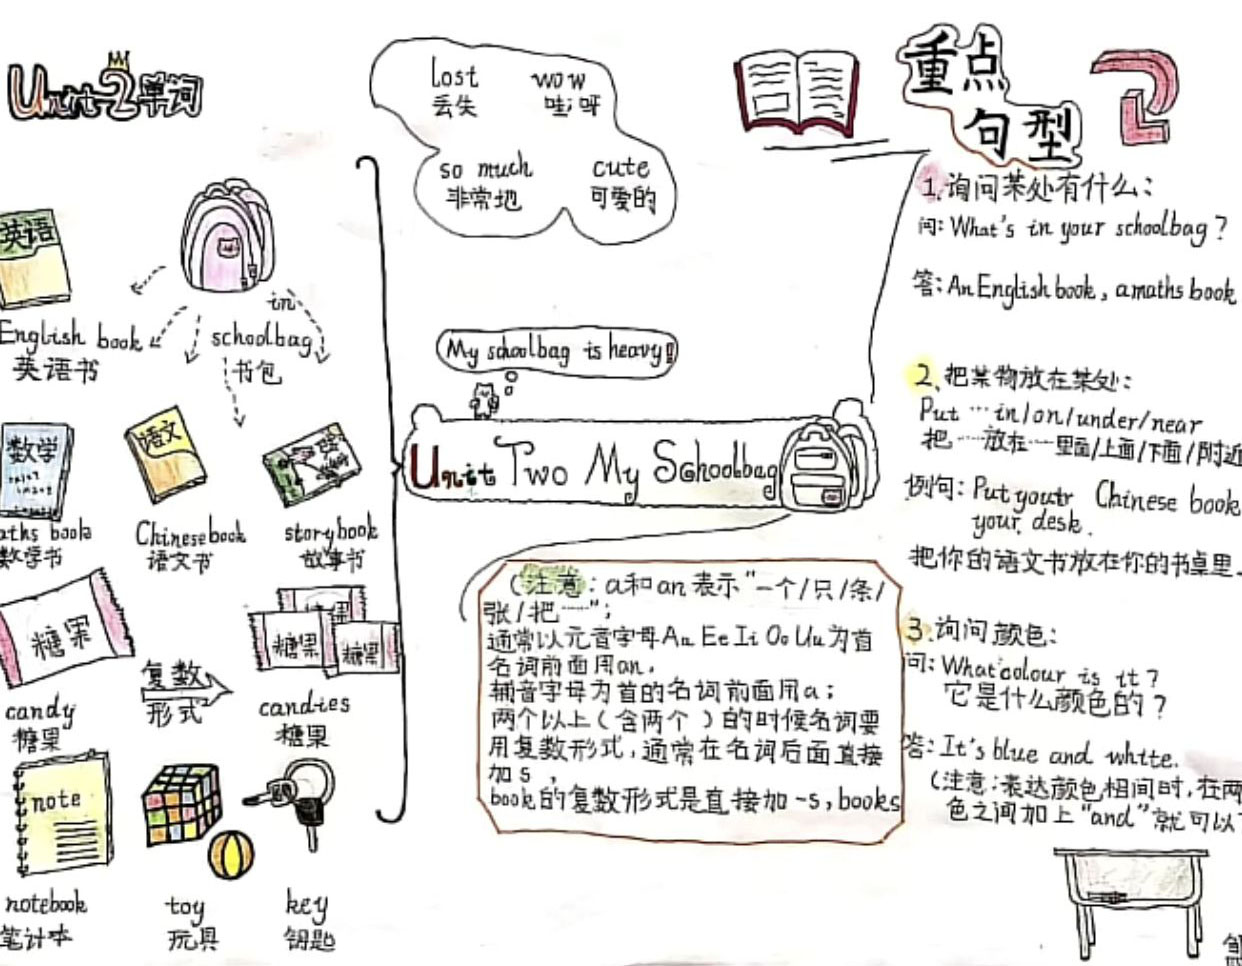 Unit 2 单词
英语
English book
英语书
in
schoolbag
书包
数学
maths book
数学书
语文
Chinese book
语文书
storybook
故事书
糖果
candy
糖果
复数
形式
糖果
糖果
糖果
candies
糖果
note
notebook
笔计本
toy
玩具
key
钥匙
lost
丢失
wow
哇;呀
so much
非常地
cute
可爱的
My schoolbag is heavy!
Unit Two My Schoolbag
(注意:a和an表示"一个/只/条/
张/把……";
通常以元音字母Aa Ee Ii Oo Uu为首
名词前面用an.
辅音字母为首的名词前面用a;
两个以上(含两个)的时候名词要
用复数形式,通常在名词后面直接
加s,
book的复数形式是直接加-s,books
重点
句型
1.询问某处有什么:
问:What's in your schoolbag?
答:An English book, a maths book
2.把某物放在某处:
Put…in/on/under/near
把……放在…里面/上面/下面/附近
例句:Put your Chinese book
your desk.
把你的语文书放在你的书桌里.
3.询问颜色:
问:What colour is it?
它是什么颜色的?
答:It's blue and white.
(注意:表达颜色相间时,在两
色之间加上"and"就可以